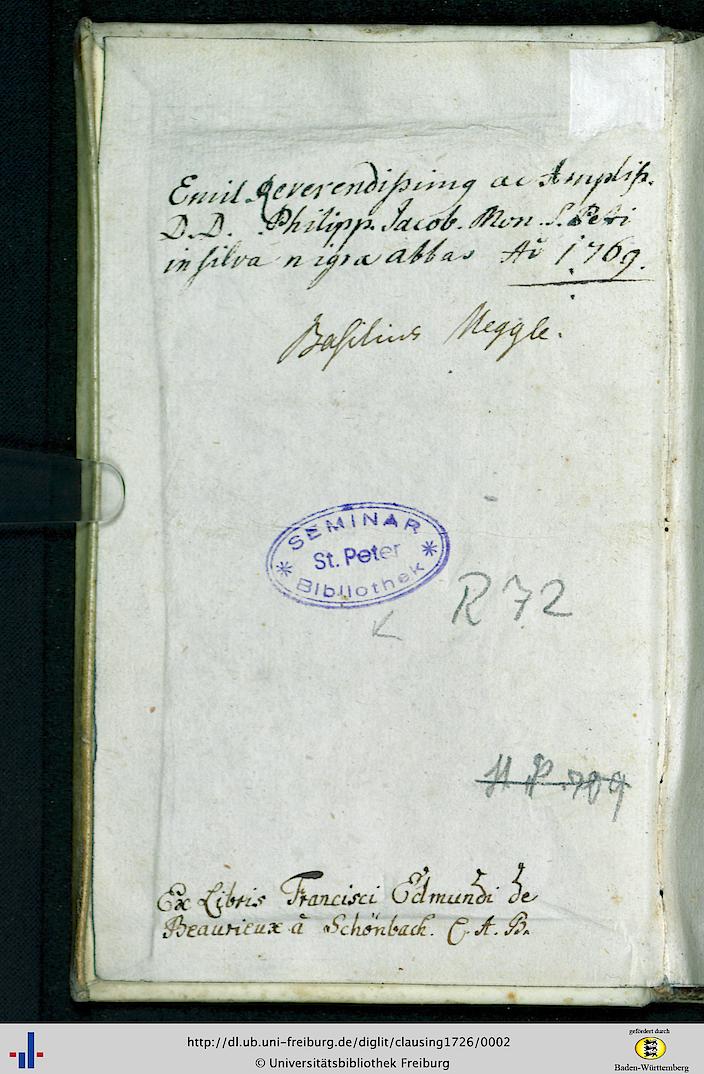 Emit Reverendissimg ac Ampliss.
D. D. Philipp. Jacob. Mon. S. Petri
in silva nigra abbas Aō 1769.
Basilius Meggle.
SEMINAR
St. Peter
Bibliothek
R 72
Ex Libris Francisci Edmundi de
Beaurieux à Schönbach. C. A. B.
http://dl.ub.uni-freiburg.de/diglit/clausing1726/0002
© Universitätsbibliothek Freiburg
gefördert durch
Baden-Württemberg